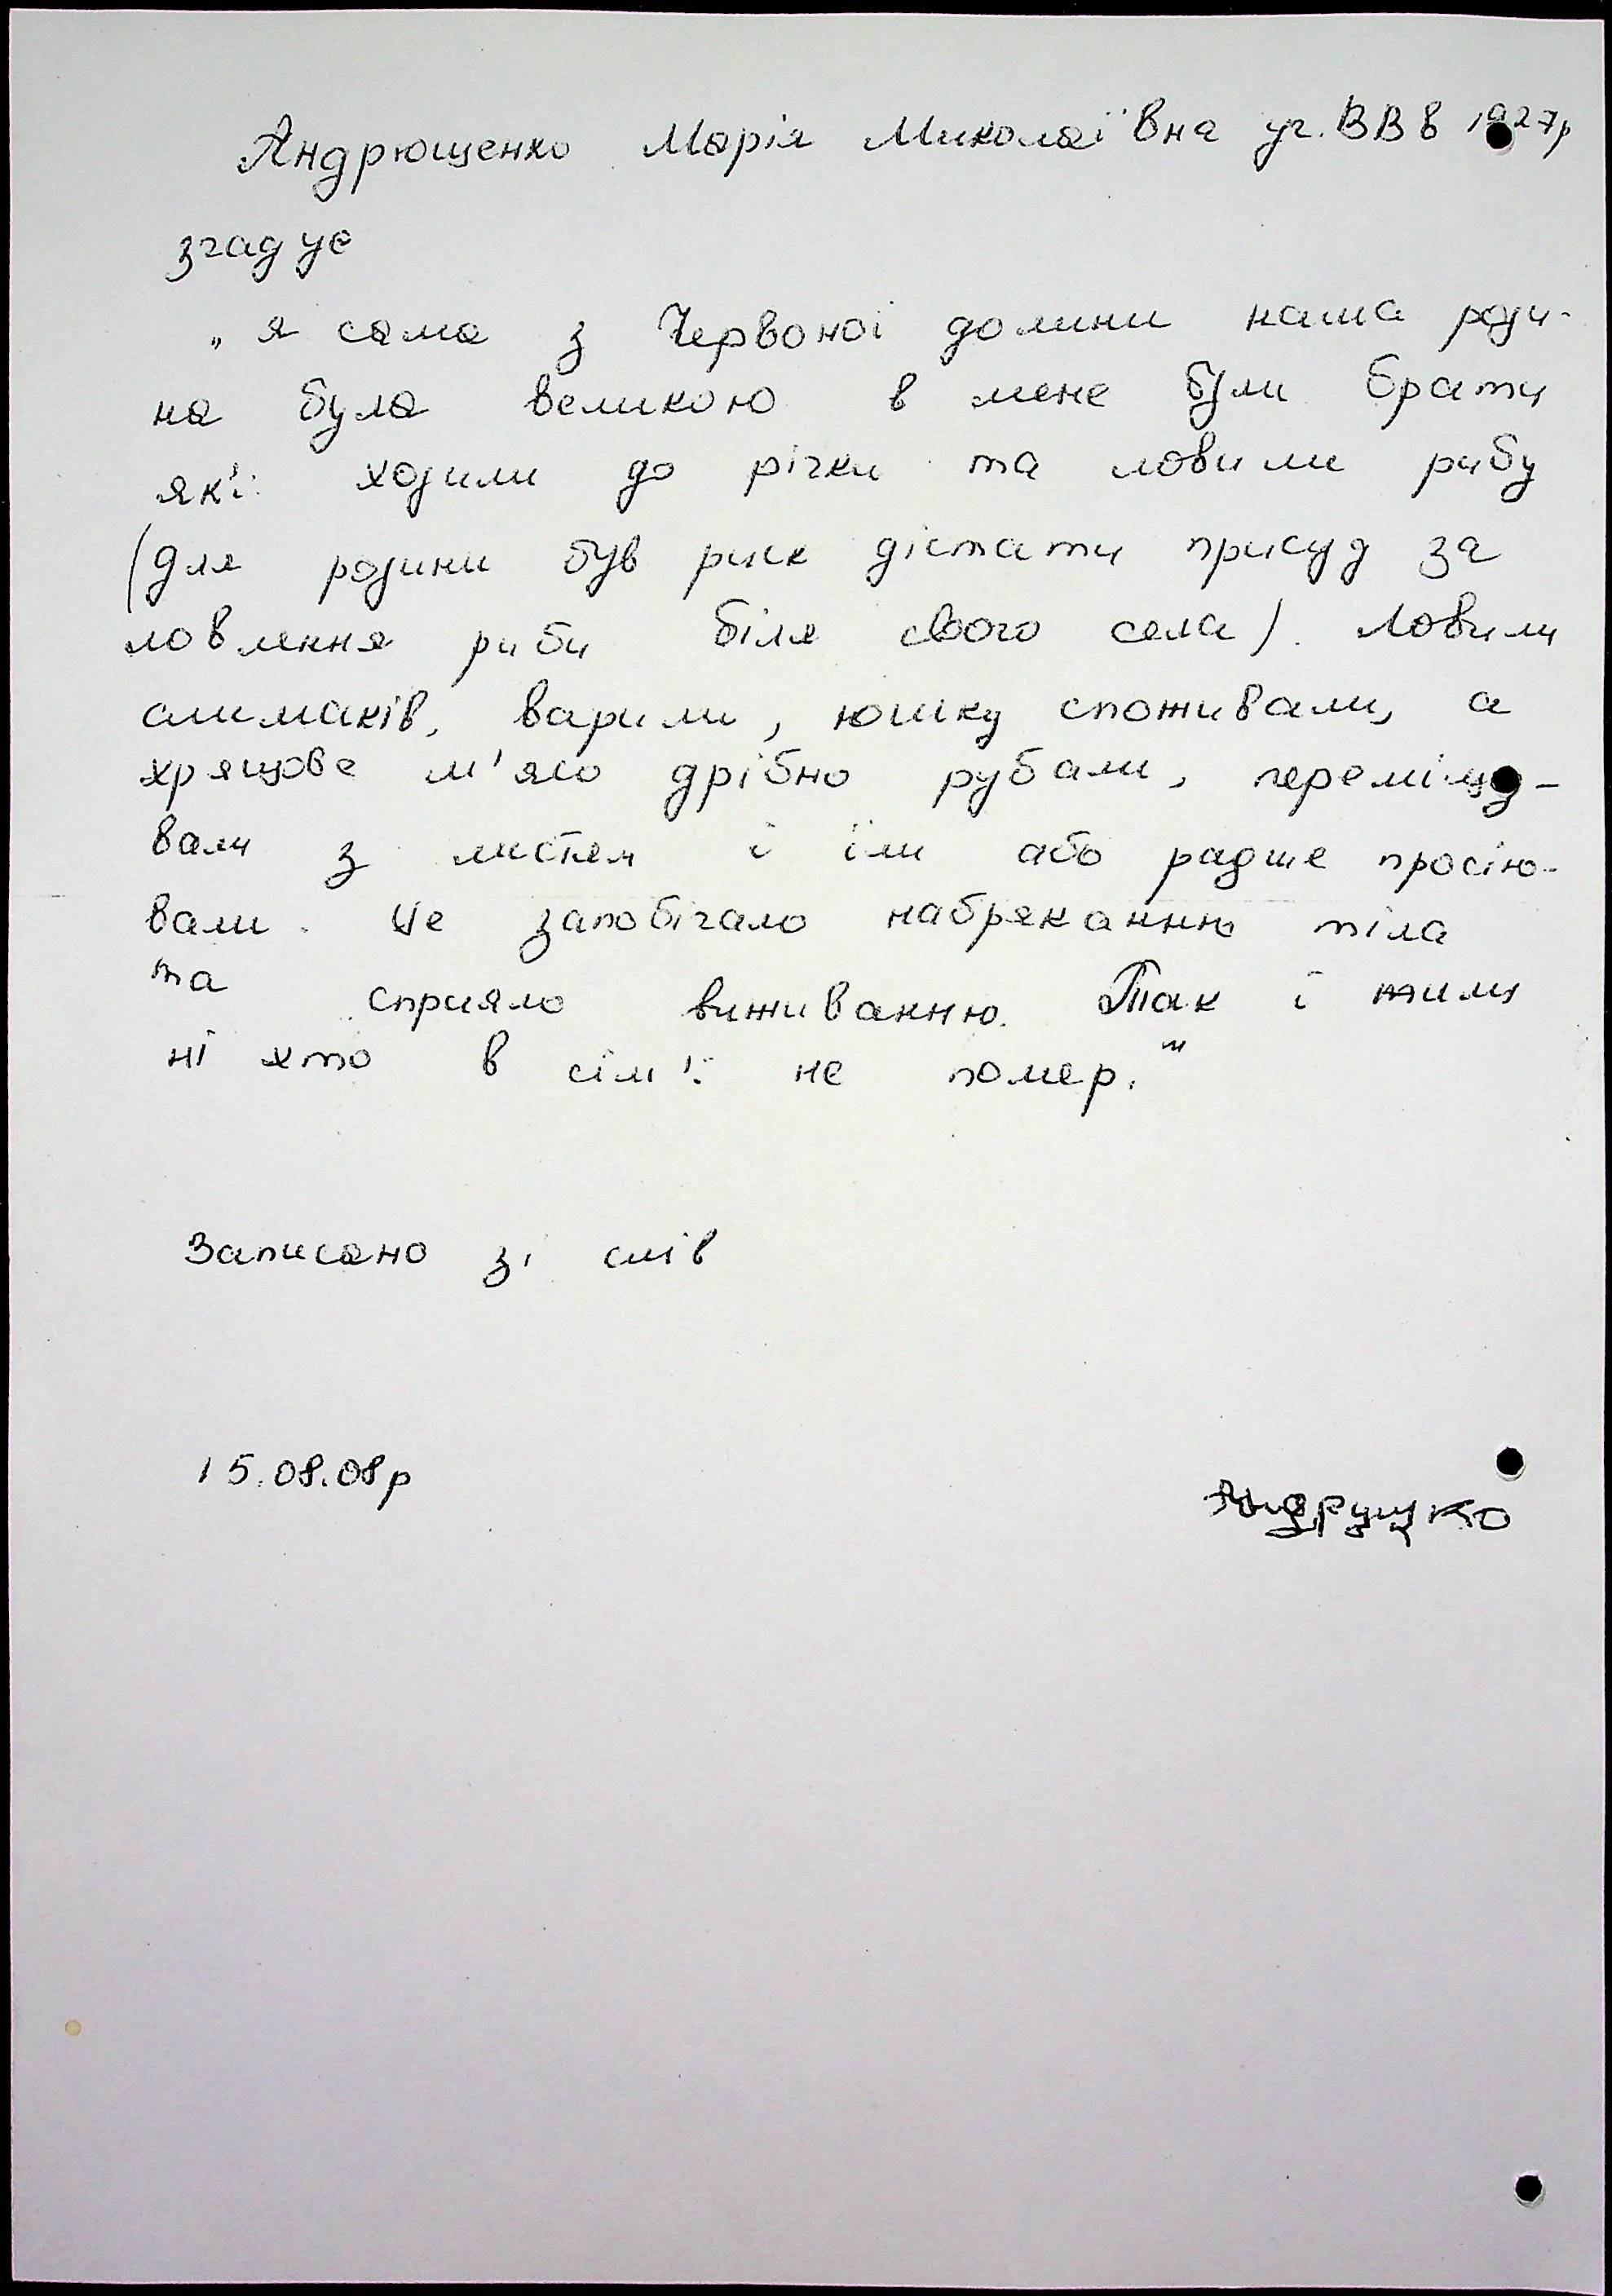 Андрющенко Марія Миколаївна уч. ВВВ 1927р
згадує
„я сама з Червоної долини наша роди-
на була великою в мене були брати
які ходили до річки та ловили рибу
(для родини був риск дістати присуд за
ловлення риби біля свого села). Ловили
слимаків, варили, юшку споживали, а
хрящове м'ясо дрібно рубали, перемішу-
вали з листям і їли або радше просію-
вали. Це запобігало набряканню тіла
та сприяло виживанню. Так і жили
ні хто в сім'ї не помер."
Записано зі слів
15.08.08р